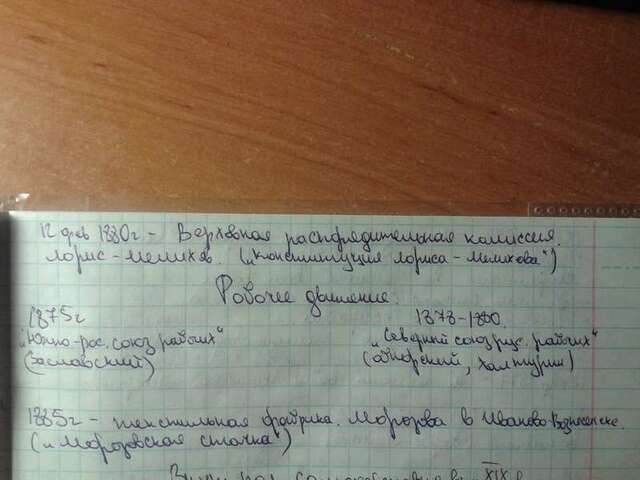 12 фев 1880г - Верховная распредительная комиссия.
Лорис-Мелихов. („Конституция Лориса-Мелихова")
Рабочее движение.
1875г 1878-1880.
„Южно-рос. союз рабочих" „Северный союз рус. рабочих"
(Заславский) (Обнорский, Халтурин)
1885г - текстильная фабрика. Морозова в Иваново-Вознесенске.
(„Морозовская стачка")
XIX в